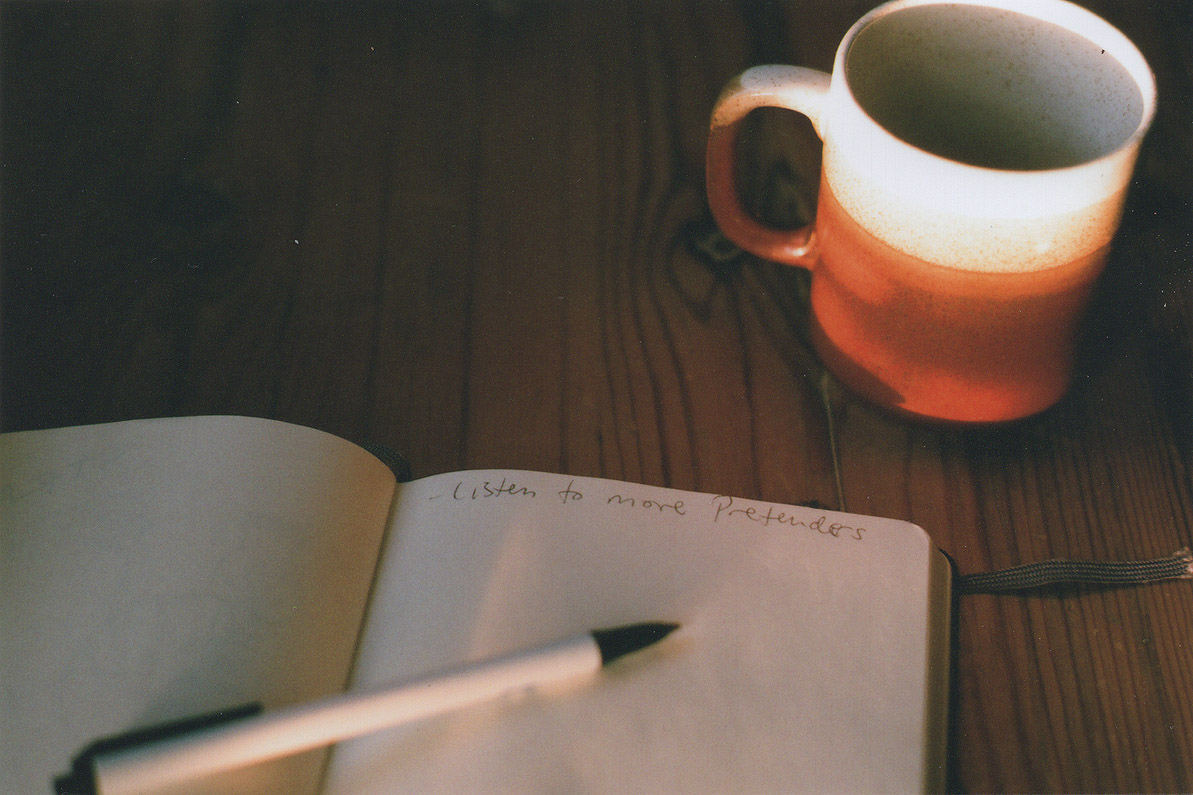 - Listen to more Pretenders